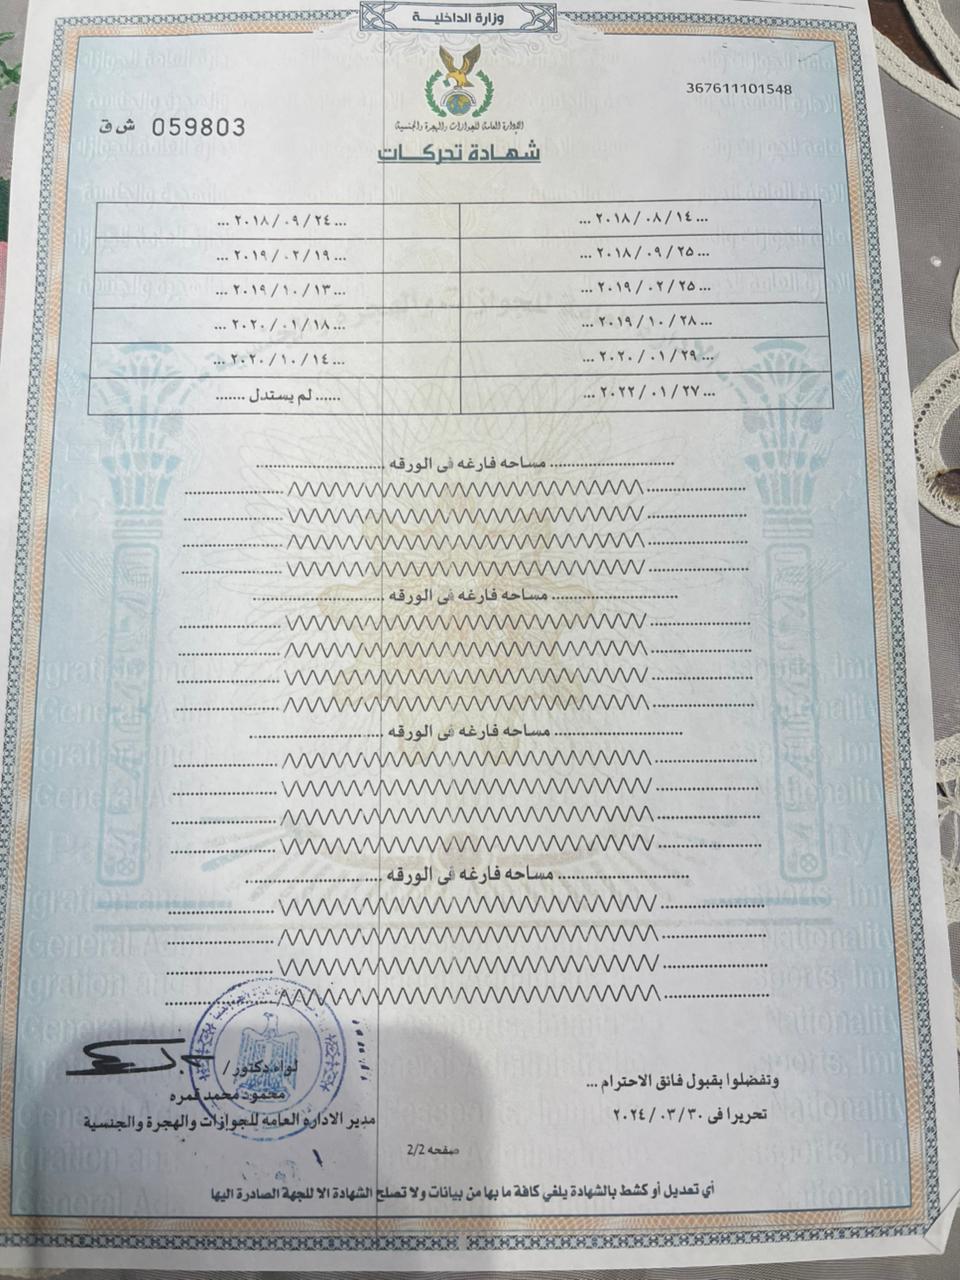 وزارة الداخلية
367611101548
059803 ش ق
الادارة العامة للجوازات والهجرة والجنسية
شهادة تحركات
... ٢٠١٨/٠٨/١٤ ... ... ٢٠١٨/٠٩/٢٤ ...
... ٢٠١٨/٠٩/٢٥ ... ... ٢٠١٩/٠٢/١٩ ...
... ٢٠١٩/٠٢/٢٥ ... ... ٢٠١٩/١٠/١٣ ...
... ٢٠١٩/١٠/٢٨ ... ... ٢٠٢٠/٠١/١٨ ...
... ٢٠٢٠/٠١/٢٩ ... ... ٢٠٢٠/١٠/١٤ ...
... ٢٠٢٢/٠١/٢٧ ... ...... لم يستدل .......
مساحه فارغه فى الورقه
مساحه فارغه فى الورقه
مساحه فارغه فى الورقه
مساحه فارغه فى الورقه
وتفضلوا بقبول فائق الاحترام ...
تحريرا فى ٢٠٢٤/٠٣/٣٠
لواء دكتور /
محمود محمد قمره
مدير الاداره العامه للجوازات والهجرة والجنسية
صفحه 2/2
أي تعديل أو كشط بالشهادة يلغي كافة ما بها من بيانات ولا تصلح الشهادة الا للجهة الصادرة اليها